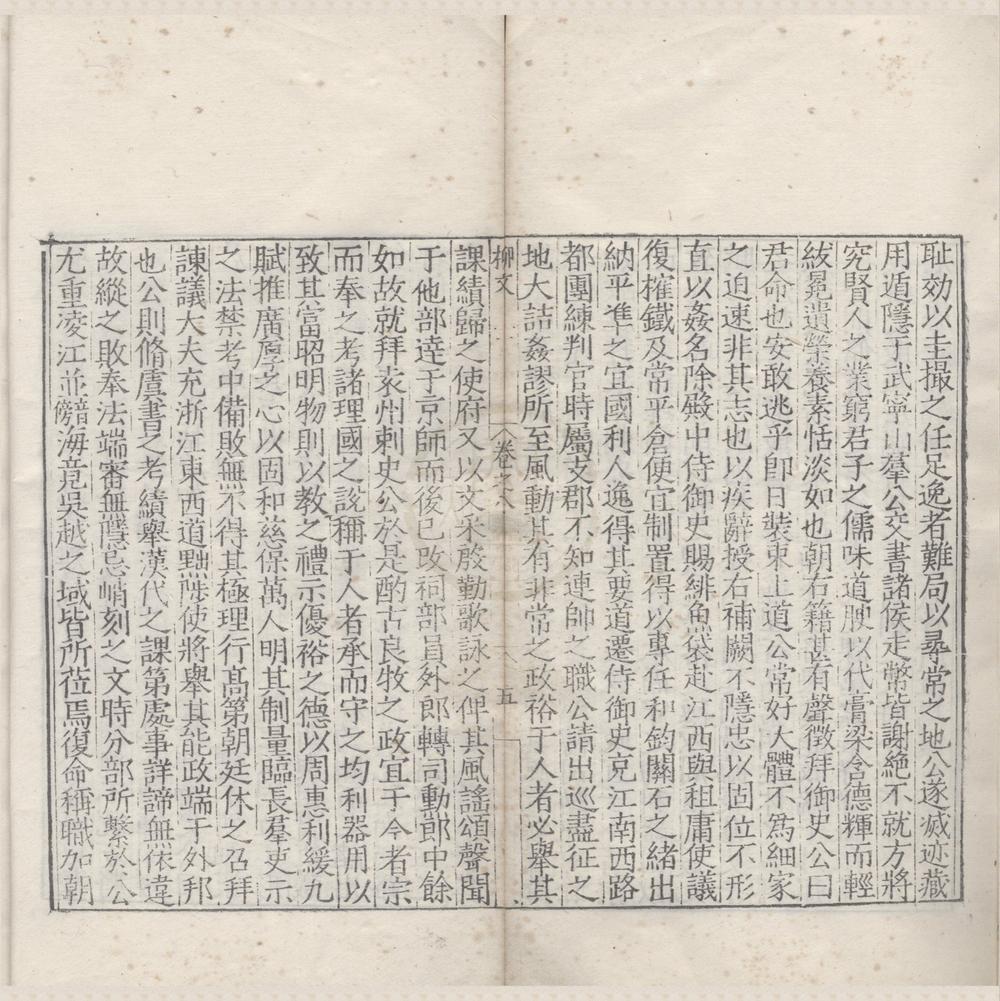 耻効以圭撮之任足逸者難局以尋常之地公遂㓕迹藏
用遁隱于武寧山羣公交書諸侯走幣皆謝絶不就方將
究賢人之業窮君子之儒味道腴以代膏梁含德輝而輕
紱冕遺榮養素恬淡如也朝右籍甚有聲徵拜御史公曰
君命也安敢逃乎卽日裝束上道公常好大體不爲細家
之迫速非其志也以疾辭授右補闕不隱忠以固位不形
直以姦名除殿中侍御史賜緋魚袋赴江西與租庸使議
復榷鐵及常平倉便宜制置得以專任和鈞關石之緒出
納平準之宜國利人逸得其要道遷侍御史充江南西路
都團練判官時屬支郡不知連帥之職公請出巡盡征之
地大詰姦謬所至風動其有非常之政裕于人者必舉其
柳文 卷之八 五
課績歸之使府又以文采殷勤歌詠之俾其風謠頌聲聞
于他部達于京師而後已改祠部員外郎轉司勳郎中餘
如故就拜袁州刺史公於是酌古良牧之政宜于今者宗
而奉之考諸理國之説稱于人者承而守之均利器用以
致其富昭明物則以教之禮示優裕之德以周惠利緩九
賦推廣厚之心以固和慈保萬人明其制量臨長羣吏示
之法禁考中備敗無不得其極理行高第朝廷休之召拜
諫議大夫充浙江東西道黜陟使將舉其能政端于外邦
也公則脩虞書之考績舉漢代之課第處事詳諦無依違
故縱之敗奉法端審無隱忌峭刻之文時分部所繫於公
尤重淩江並鬱海竟吳越之域皆所莅焉復命稱職加朝